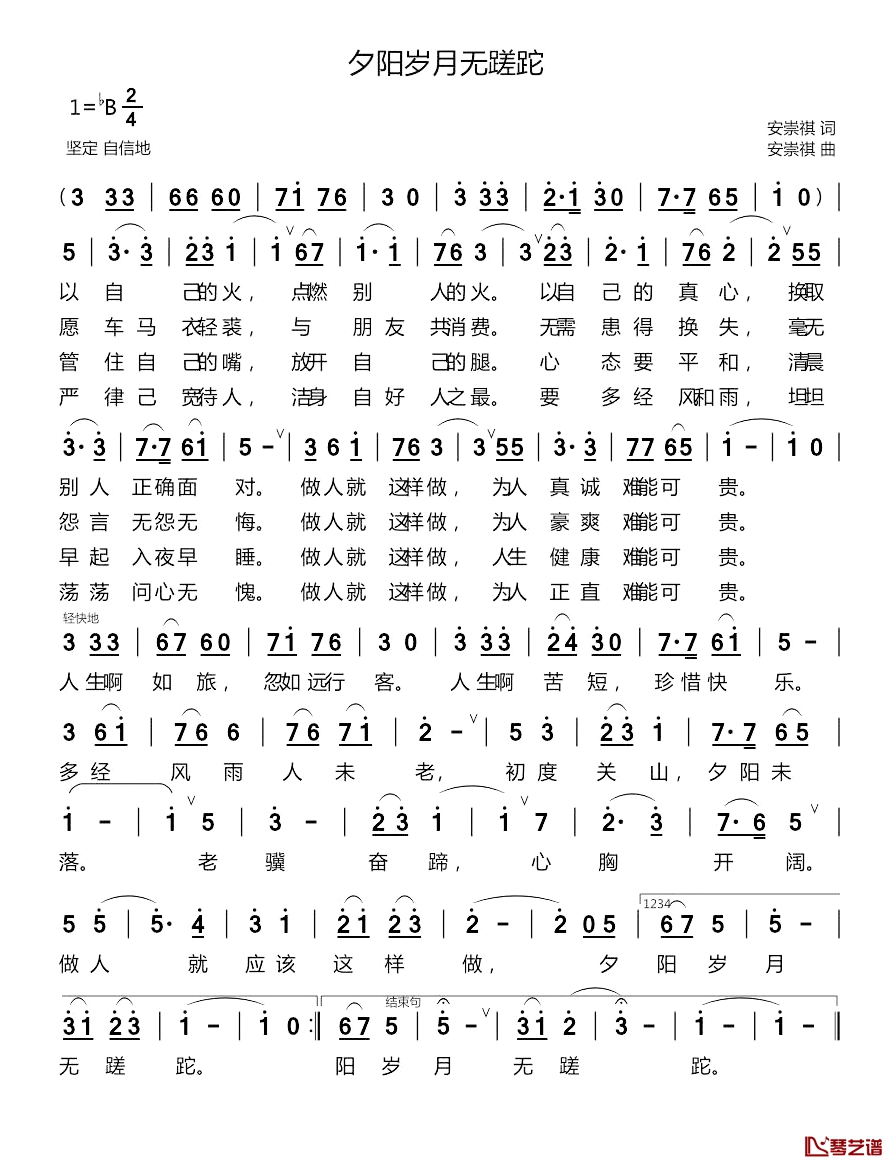 夕阳岁月无蹉跎
1=♭B 2/4
坚定 自信地
安崇祺 词
安崇祺 曲
(3 33 | 66 60 | 7i 76 | 3 0 | 3 33 | 2·i 30 | 7·7 65 | i 0) |
5 | 3·3 | 23 i | i ∨67 | i·i | 76 3 | 3 ∨23 | 2·i | 76 2 | 2 ∨55 |
以 自 己的火， 点燃 别 人的火。 以自 己 的 真 心， 换取
愿 车 马 衣轻裘， 与 朋 友 共消费。 无需 患 得 换 失， 毫无
管 住 自 己的嘴， 放开 自 己的腿。 心 态 要 平 和， 清晨
严 律 己 宽待人， 洁身 自 好 人之最。 要 多 经 风和雨， 坦坦
3·3 | 7·7 6i | 5 -∨ | 3 6 i | 76 3 | 3 ∨55 | 3·3 | 77 65 | i - | i 0 |
别 人 正确面 对。 做人就 这样做， 为人 真 诚 难能可 贵。
怨 言 无怨无 悔。 做人就 这样做， 为人 豪 爽 难能可 贵。
早 起 入夜早 睡。 做人就 这样做， 人生 健 康 难能可 贵。
荡 荡 问心无 愧。 做人就 这样做， 为人 正 直 难能可 贵。
轻快地
3 33 | 67 60 | 7i 76 | 3 0 | 3 33 | 24 30 | 7·7 6i | 5 - |
人生啊 如 旅， 忽如远行 客。 人生啊 苦 短， 珍惜快 乐。
3 6i | 76 6 | 76 7i | 2 -∨ | 5 3 | 23 i | 7·7 65 |
多 经 风 雨 人 未 老， 初 度 关 山， 夕阳未
i - | i ∨5 | 3 - | 23 i | i ∨7 | 2·3 | 7·6 5∨ |
落。 老 骥 奋 蹄， 心 胸 开 阔。
5 5 | 5·4 | 3 i | 2i 23 | 2 - | 2 05 | 67 5 | 5 5 |
1234
做人 就 应 该 这 样 做， 夕 阳 岁 月
3i 23 | i - | i 0 :‖ 67 5 | 5 -∨ | 3i 2 | 3 - | i - | i - ‖
结束句
无 蹉 跎。 阳 岁 月 无 蹉 跎。
琴艺谱